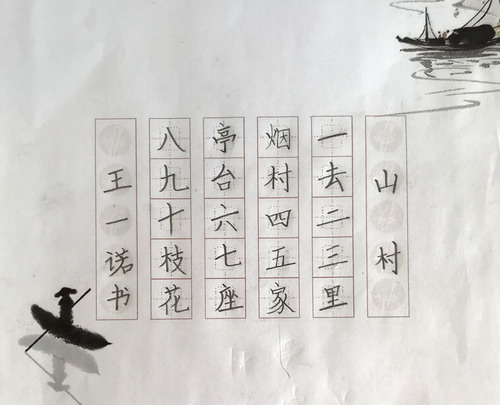 山村
一去二三里
烟村四五家
亭台六七座
八九十枝花
王一诺书